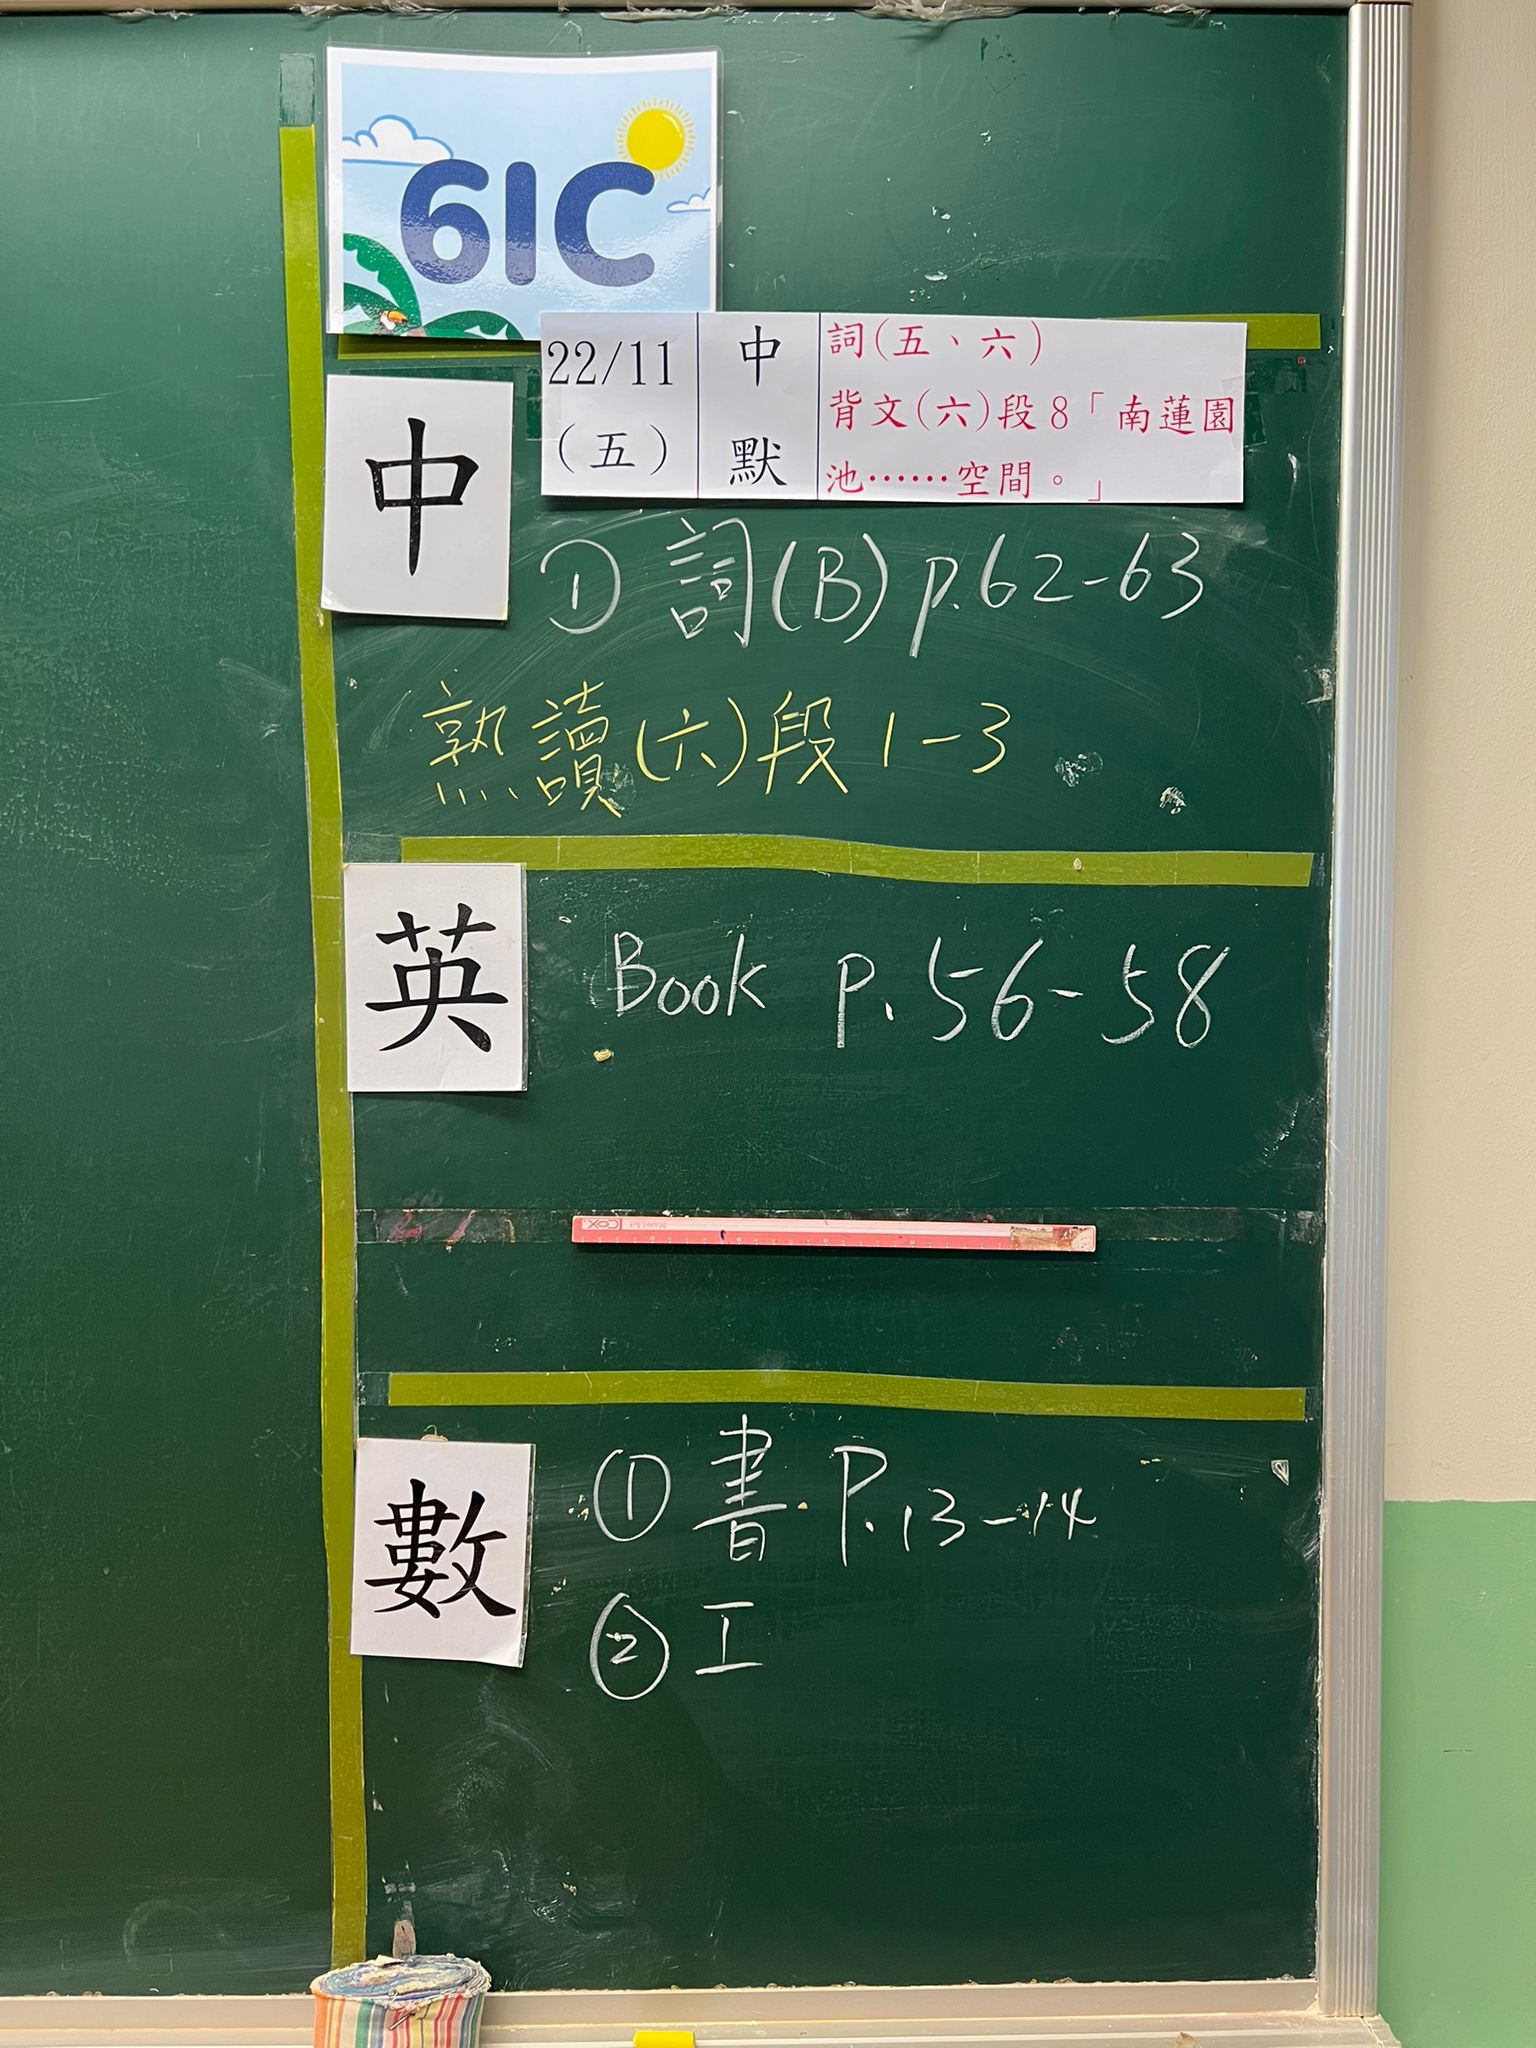 61C
22/11
(五)
中
默
詞(五、六)
背文(六)段8「南蓮園
池……空間。」
中
① 詞(B) p.62-63
熟讀(六)段1-3
英
Book P.56-58
COX
數
① 書 P.13-14
② 工